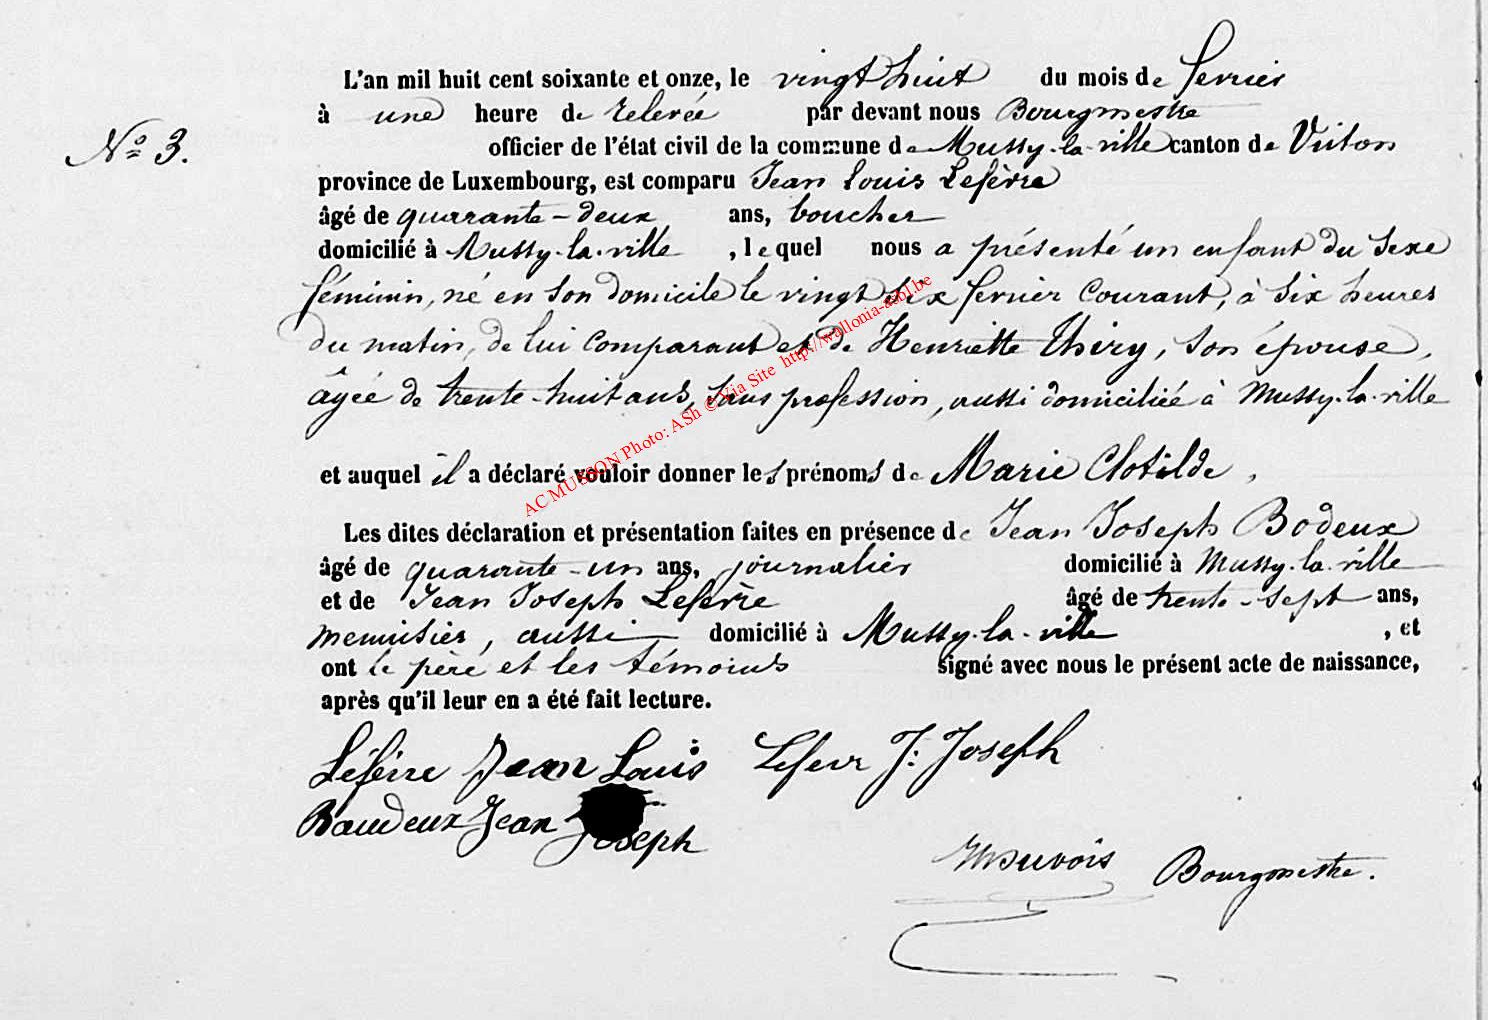 L'an mil huit cent soixante et onze, le vingt huit du mois de fevrier
à une heure de relevée par devant nous Bourgmestre
N° 3.
officier de l'état civil de la commune de Mussy-la-ville canton de Virton
province de Luxembourg, est comparu Jean Louis Lefèvre
âgé de quarante-deux ans, boucher
domicilié à Mussy-la-ville, lequel nous a présenté un enfant du sexe
féminin, né en son domicile le vingt six fevrier courant, à six heures
du matin, de lui comparant et de Henriette Thiry, son épouse,
âgée de trente-huit ans, sans profession, aussi domiciliée à Mussy-la-ville
et auquel il a déclaré vouloir donner les prénoms de Marie Clotilde,
Les dites déclaration et présentation faites en présence de Jean Joseph Bodeux
âgé de quarante-un ans, journalier domicilié à Mussy-la-ville
et de Jean Joseph Lefèvre âgé de trente-sept ans,
menuisier, aussi domicilié à Mussy-la-ville, et
ont le père et les témoins signé avec nous le présent acte de naissance,
après qu'il leur en a été fait lecture.
Léfèvre Jean Louis Lefevr J: Joseph
Baudeux Jean Joseph
Bourgmestre.
AC MUSSON Photo: ASh © Via Site http://wallonia-asbl.be